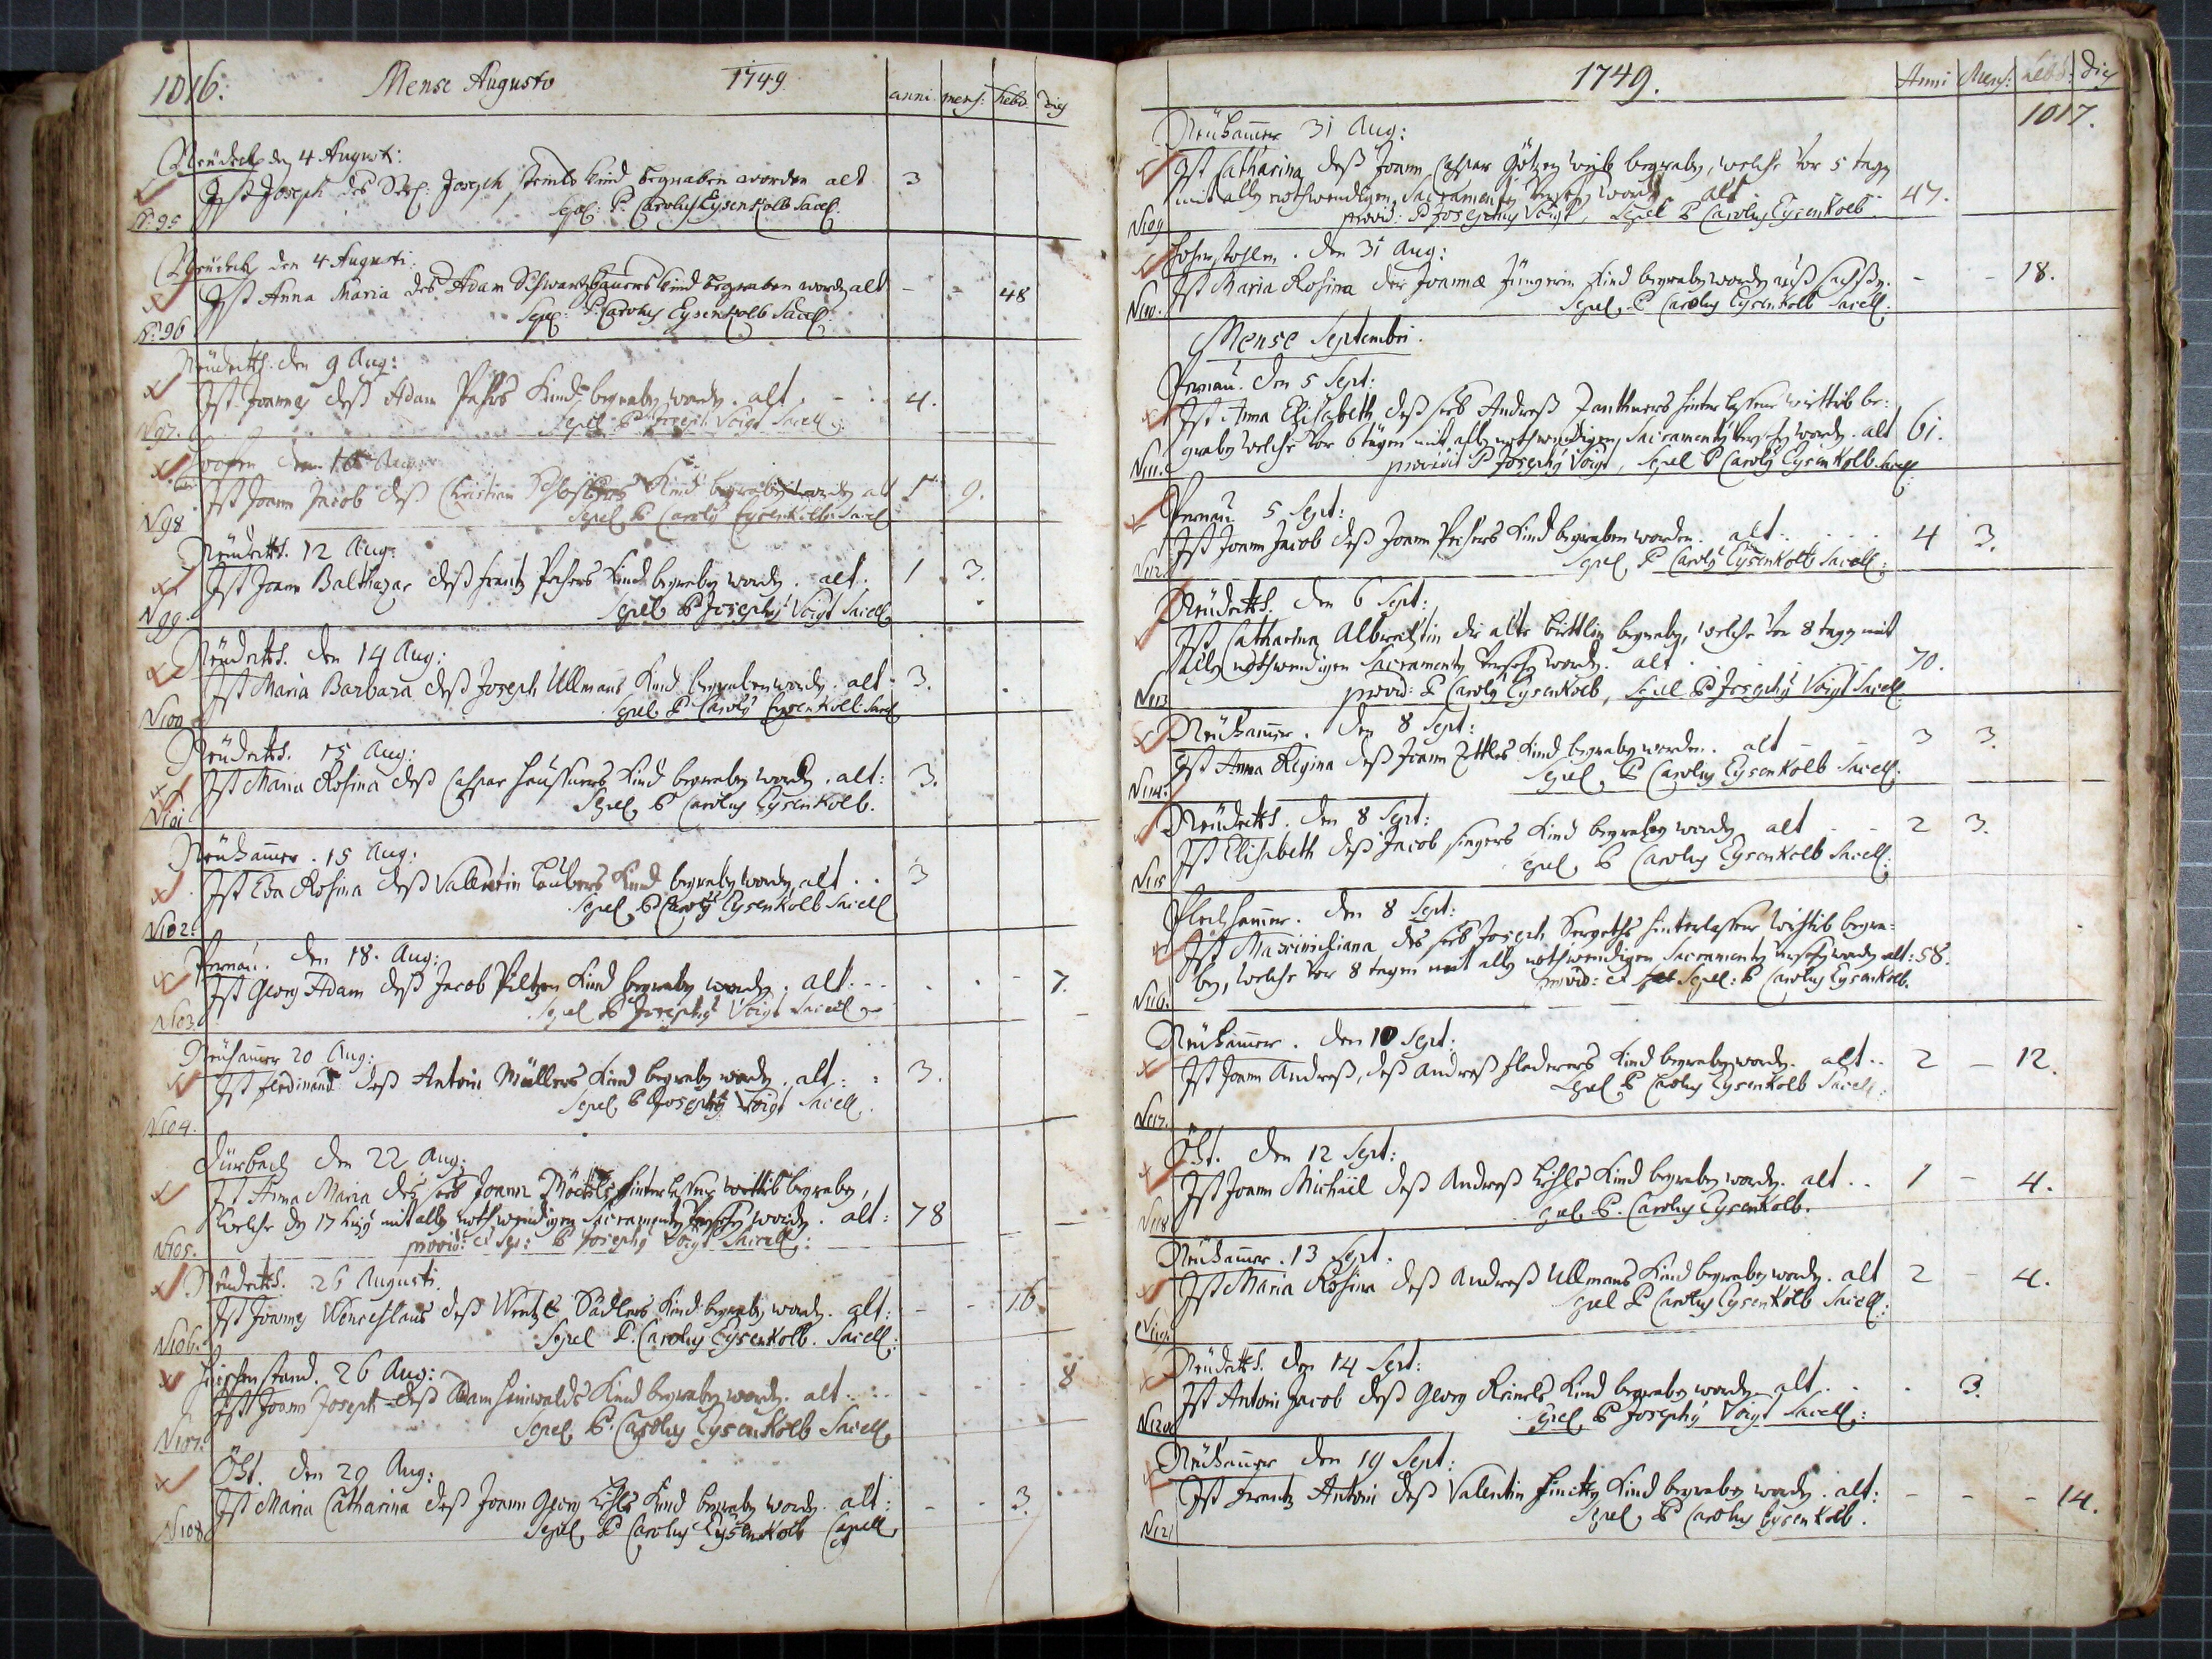 1016. Mense Augusto 1749. anni. mens: hebd. dies
Neüdeck den 4 Augusti:
Ist Joseph des Joseph kind begraben worden alt 3
Sepel: P. Carolus Eysenkolb Sacell.
No: 95
Neüdeck den 4 Augusti:
Ist Anna Maria des Adam Schwartzbauers kind begraben worden alt - - 48
Sepel: P. Carolus Eysenkolb Sacell.
No: 96
Neüdekh. den 9 Aug:
Ist Joannes deß Adam Kind begraben worden. alt. 4.
Sepel. P. Joseph Voigt Sacell:
N97.
den Aug:
Ist Joann Jacob deß Christian Kind begraben worden alt 1 9.
Sepel P. Carolus Eysenkolb Sacell
N98
Neüdekh. 12 Aug:
Ist Joann Balthazar deß frantz Kind begraben worden. alt. 1. 3.
Sepel. P Josephus Voigt Sacell
N99.
Neüdekh. den 14 Aug:
Ist Maria Barbara deß Joseph Ullmans Kind begraben worden. alt. 3.
Sepel. P Carolus Eysenkolb Sacell
N100
Neüdekh. 15 Aug:
Ist Maria Rosina deß Caspar Kind begraben worden. alt: 3.
Sepel. P Carolus Eysenkolb.
N101
Neühamer. 15 Aug:
Ist Eva Rosina deß Valentin Kind begraben worden alt.. 3
Sepel. P Carolus Eysenkolb Sacell
N102.
Pernau. den 18. Aug:
Ist Georg Adam deß Jacob Piltzen Kind begraben worden. alt. 7.
Sepel P Josephus Voigt Sacell
N103.
Neühamer 20 Aug:
Ist ferdinand deß Antoni Müllers Kind begraben worden. alt: 3.
Sepel. P Josephus Voigt Sacell.
N104.
Dürbach den 22 Aug:
Ist Anna Maria des Joann hinterlassene wittib begraben,
welche den 17 mit allen nothwendigen Sacramenten versehen worden. alt: 78
provid: et Sep: P Josephus Voigt Sacell:
N105.
Neüdekh. 26 Augusti.
Ist Joannes Wenceslaus deß Wentzl Sadlers Kind begraben worden. alt: - - 16
Sepel P. Carolus Eysenkolb. Sacell:
N106.
Hirschenstand. 26 Aug:
Ist Joann Joseph deß Adam Kind begraben worden. alt. 8
Sepel. P. Carolus Eysenkolb Sacell
N107.
Öht. den 29 Aug:
Ist Maria Catharina deß Joann Georg Kind begraben worden. alt: - - 3.
Sepel. P Carolus Eysenkolb Capell
N108
1749. Anni Mens: hebd: dies
1017.
Neühamer 31 Aug:
Ist Catharina deß Joann Caspar Götzen weib begraben, welche vor 5 tagen
mit allen nothwendigen Sacramenten versehen worden alt 47.
provid: P Josephus Voigt, Sepel P Carolus Eysenkolb.
N109
den 31 Aug:
Ist Maria Rosina der Joannæ Jüngerin Kind begraben worden - - 18.
Sepel. P Carolus Eysenkolb Sacell.
N110.
Mense Septembri.
Pernau. den 5 Sept:
Ist Anna Elisabeth deß Andreß hinterlassene wittib be:
graben welche vor 6 tägen mit allen nothwendigen Sacramenten versehen worden. alt 61.
providit P Josephus Voigt, Sepel P Carolus Eysenkolb Sacell
N111.
Pernau. 5 Sept:
Ist Joann Jacob deß Joann Kind begraben worden. alt. 4 3.
Sepel. P Carolus Eysenkolb Sacell:
N112.
Neüdekh. den 6 Sept:
Ist Catharina Albrechtin die alte begraben, welche vor 8 tagen mit
allen nothwendigen Sacramenten versehen worden. alt 70.
provid: P Carolus Eysenkolb, Sepel P Josephus Voigt Sacell.
N113
Neühamer. den 8 Sept:
Ist Anna Regina deß Joann Kind begraben worden. alt - - 3 3.
Sepel. P Carolus Eysenkolb Sacell.
N114.
Neüdekh. den 8 Sept:
Ist Elisabeth deß Jacob Kind begraben worden alt - - 2 3.
Sepel. P Carolus Eysenkolb Sacell:
N115
Plechhamer. den 8 Sept:
Ist Maximiliana des Joseph hinterlassene Wittib begra=
ben, welche vor 8 tagen mit allen nothwendigen Sacramenten versehen worden alt: 58.
provid: et Sepel: P Carolus Eysenkolb.
N116.
Neühamer. den 10 Sept:
Ist Joann Andreß, deß Andreß Kind begraben worden. alt.. 2 - 12.
Sepel P Carolus Eysenkolb Sacell:
N117.
Öht. den 12 Sept:
Ist Joann Michäel deß Andreß Kind begraben worden. alt.. 1 - 4.
Sepel. P. Carolus Eysenkolb.
N118
Neühamer. 13 Sept.
Ist Maria Rosina deß Andreß Ullmans Kind begraben worden. alt 2 - 4.
Sepel P Carolus Eysenkolb Sacell:
N119.
Neüdekh. den 14 Sept:
Ist Antoni Jacob deß Georg Kind begraben worden alt. . 3.
Sepel P Josephus Voigt Sacell:
N120
Neühamer den 19 Sept:
Ist frantz Antoni deß Valentin Kind begraben worden. alt: - - - 14.
Sepel. P Carolus Eysenkolb.
N121